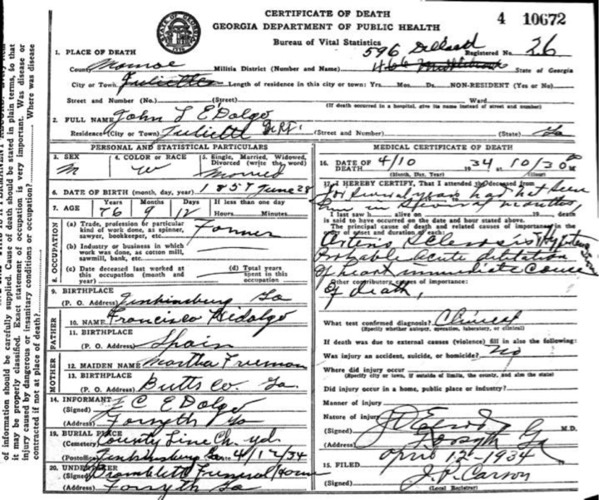 CERTIFICATE OF DEATH
GEORGIA DEPARTMENT OF PUBLIC HEALTH
Bureau of Vital Statistics
4 10672
596 Dillard Registered No. 26
1. PLACE OF DEATH
County Monroe Militia District (Number and Name) 466 State of Georgia
City or Town Juliette Length of residence in this city or town: Yrs. Mos. Ds. NON-RESIDENT (Yes or No)
Street and Number (No.) (Street) Ward
(If death occurred in hospital, give its name instead of street and number)
2. FULL NAME John L EDalgo
Residence (City or Town) Juliette Ga RFD1 (Street and Number) (State) Ga
PERSONAL AND STATISTICAL PARTICULARS
3. SEX M
4. COLOR or RACE W
5. Single, Married, Widowed, Divorced (write the word) Married
6. DATE OF BIRTH (month, day, year) 1857 June 28
7. AGE Years Months Days If less than one day
76 9 12 Hours Minutes
8. OCCUPATION
(a) Trade, profession or particular kind of work done, as spinner, sawyer, bookkeeper, etc. Farmer
(b) Industry or business in which work was done, as cotton mill, sawmill, bank, etc.
(c) Date deceased last worked at this occupation (month and year)
(d) Total years spent in this occupation
9. BIRTHPLACE
(P. O. Address) Jenkinsburg Ga
FATHER
10. NAME Francisco Hidalgo
11. BIRTHPLACE
(P. O. Address) Spain
MOTHER
12. MAIDEN NAME Martha Freeman
13. BIRTHPLACE
(P. O. Address) Butts Co Ga
14. INFORMANT
(Signed) J C EDalgo
(Address) Forsyth Ga
19. BURIAL PLACE
(Cemetery) County Line Ch yd
(Postoffice) Jenkinsburg Ga 4/12/34
20. UNDERTAKER
(Signed) Bramblett Funeral Home
(Address) Forsyth Ga
MEDICAL CERTIFICATE OF DEATH
16. DATE OF DEATH 4/10 34 10/30
(Month, Day, Year) (Hour)
17. I HEREBY CERTIFY, That I attended the deceased from
had not seen
him in months,
I last saw h alive on 19 death
is said to have occurred on the date and hour stated above.
The principal cause of death and related causes of importance in the order of onset and duration of each:
Arterio Sclerosis Hypertension
Probable acute dilatation
of heart immediate cause
Other contributory causes of importance:
of death,
What test confirmed diagnosis? Clinical
(Specify whether autopsy, operation, laboratory, or clinical)
If death was due to external causes (violence) fill in also the following:
Was injury an accident, suicide, or homicide? no
Where did injury occur
(Specify city or town, if outside of limits, the county, and also the state)
Did injury occur in home, public place or industry?
Manner of injury
Nature of injury
(Signed) M.D.
(Address) Forsyth Ga
April 12-1934
15. FILED
(Signed) J. P. Carson
of information should be carefully supplied. Cause of death should be stated in plain terms, so that
it may be properly classified. Exact statement of occupation is very important. Was disease or
injury caused by dangerous or insanitary conditions or occupation? Where was disease
contracted if not at place of death?